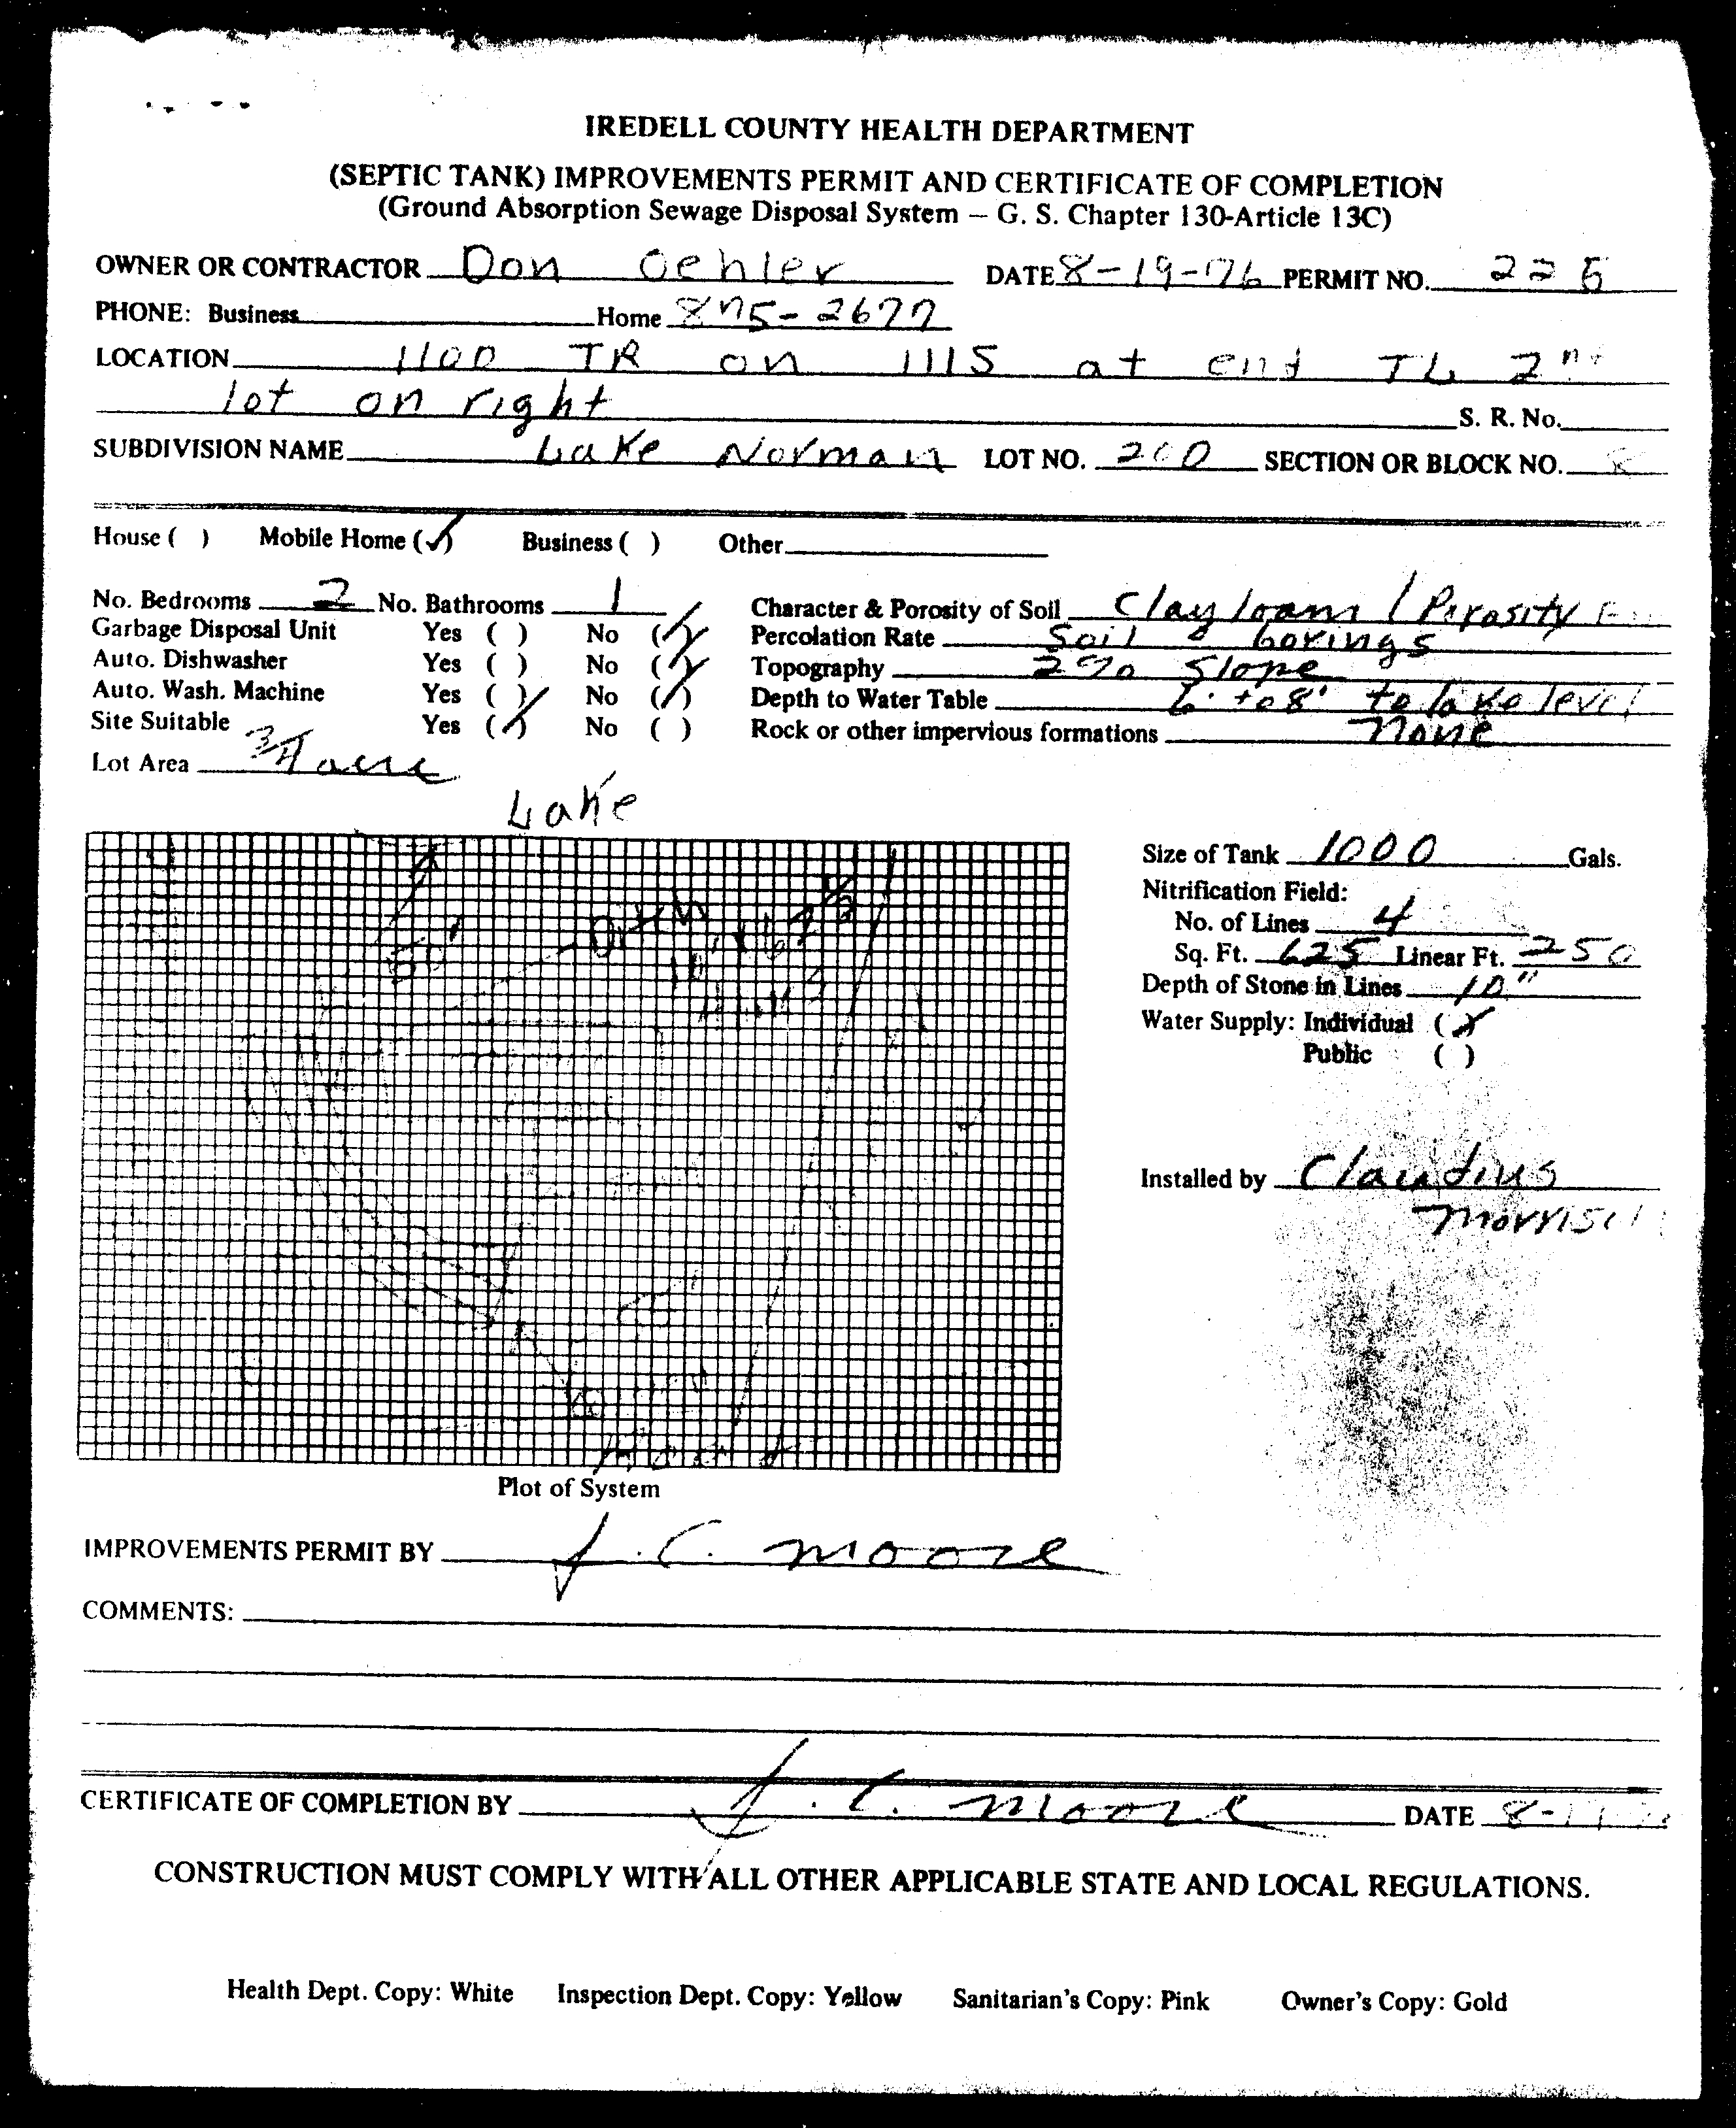 IREDELL COUNTY HEALTH DEPARTMENT
(SEPTIC TANK) IMPROVEMENTS PERMIT AND CERTIFICATE OF COMPLETION
(Ground Absorption Sewage Disposal System – G. S. Chapter 130-Article 13C)
OWNER OR CONTRACTOR Don Oehler DATE 8-19-76 PERMIT NO. 225
PHONE: Business Home 875-2677
LOCATION 1100 TR on 1115 at end TL 2nd
lot on right S. R. No.
SUBDIVISION NAME Lake Norman LOT NO. 200 SECTION OR BLOCK NO.
House ( ) Mobile Home (✓) Business ( ) Other
No. Bedrooms 2 No. Bathrooms 1
Garbage Disposal Unit Yes ( ) No (✓)
Auto. Dishwasher Yes ( ) No (✓)
Auto. Wash. Machine Yes ( ) No (✓)
Site Suitable Yes (✓) No ( )
Lot Area 3/4 acre
Character & Porosity of Soil Clay loam / Porosity
Percolation Rate Soil borings
Topography 2% Slope
Depth to Water Table 6' to 8' to lake level
Rock or other impervious formations None
Lake
50'
Size of Tank 1000 Gals.
Nitrification Field:
No. of Lines 4
Sq. Ft. 625 Linear Ft. 250
Depth of Stone in Lines 10"
Water Supply: Individual (✓)
Public ( )
Installed by Claudius
Morrison
Plot of System
IMPROVEMENTS PERMIT BY J. C. Moore
COMMENTS:
CERTIFICATE OF COMPLETION BY J. C. Moore DATE
CONSTRUCTION MUST COMPLY WITH ALL OTHER APPLICABLE STATE AND LOCAL REGULATIONS.
Health Dept. Copy: White Inspection Dept. Copy: Yellow Sanitarian's Copy: Pink Owner's Copy: Gold